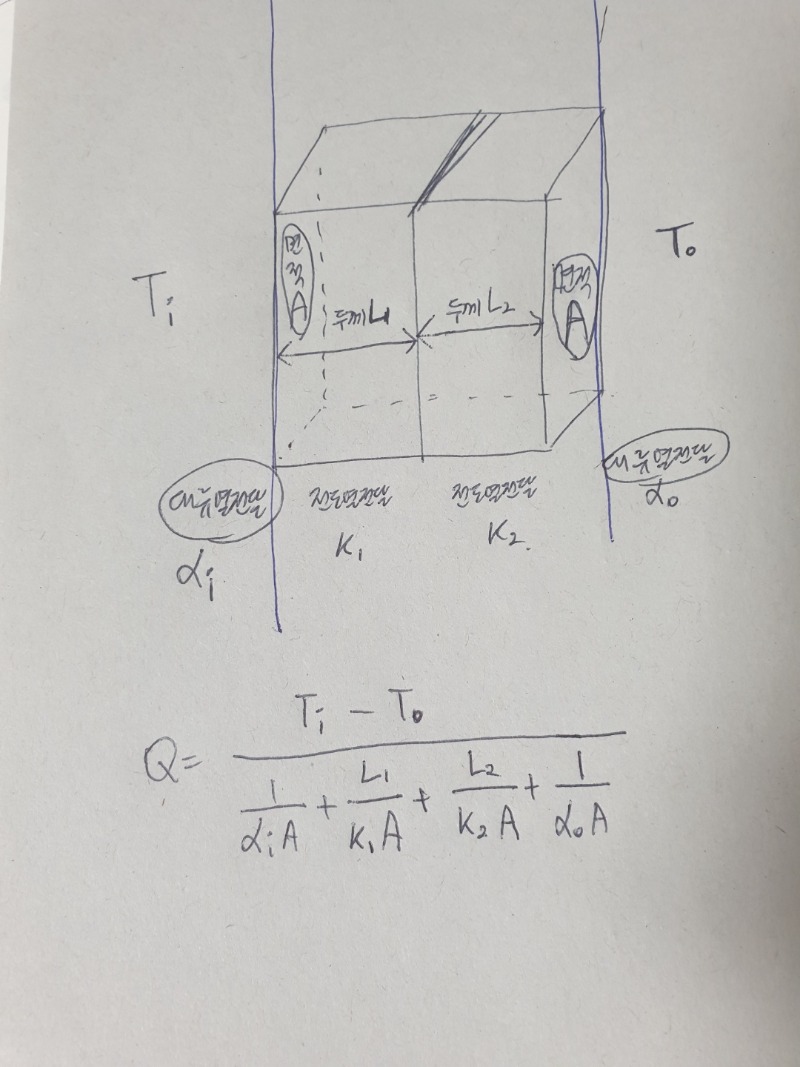 Ti
면적 A
두께 L1
두께 L2
면적 A
To
대류열전달
αi
전도열전달
K1
전도열전달
K2.
대류열전달
αo
Q = (Ti - To) / (1/(αiA) + L1/(K1A) + L2/(K2A) + 1/(αoA))